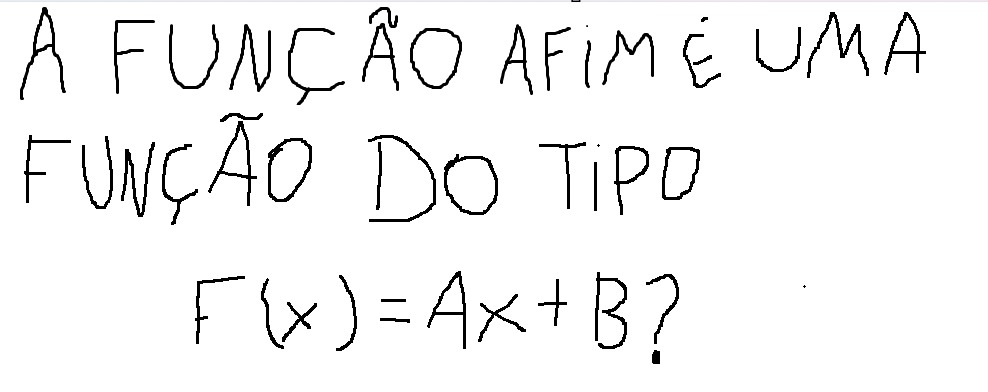 A FUNÇÃO AFIM É UMA
FUNÇÃO DO TIPO
F(x)=Ax+B?